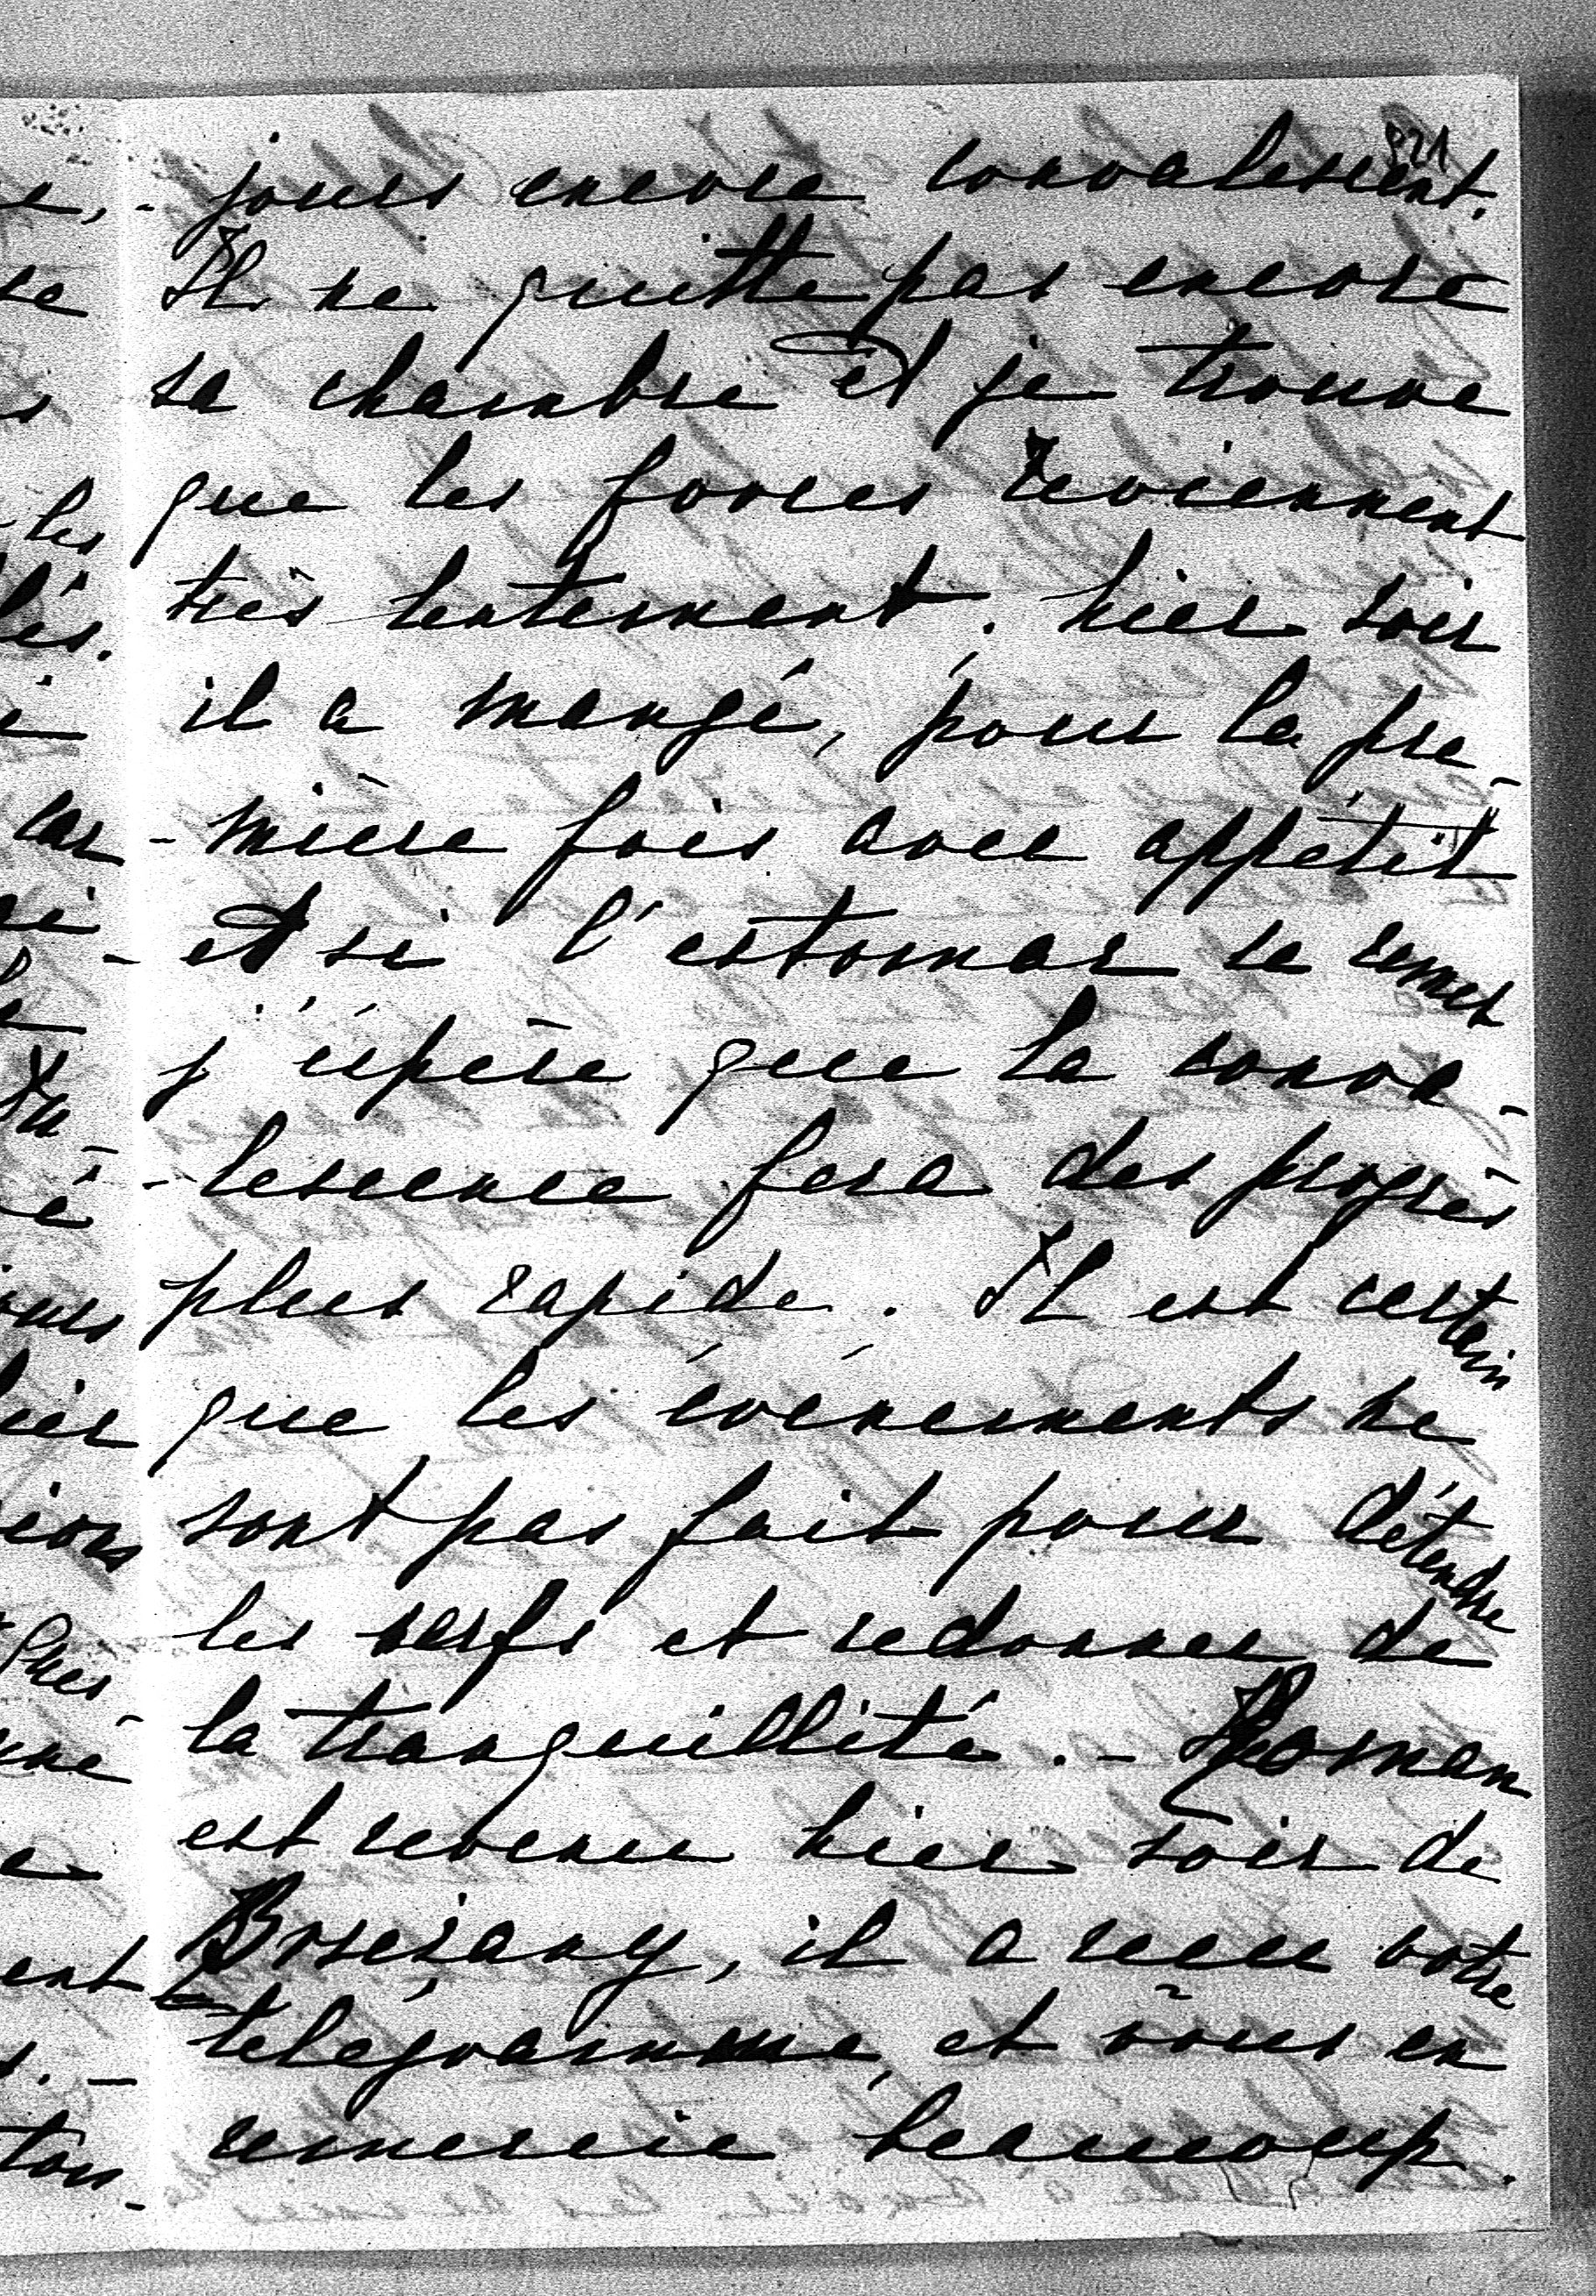 821
- jours encore convalescent.
Il ne quitte pas encore
sa chambre et je trouve
que les forces reviennent
très lentement. hier soir
il a mangé, pour la pre-
- mière fois avec appétit
- et si l'estomac se remet
j'espère que la conva-
- lescence fera des progrès
plus rapide. Il est certain
que les événements ne
sont pas fait pour détendre
les nerfs et redonner de
la tranquillité. - Roman
est revenu hier soir de
Brzeżany, il a recu votre
telégramme, et vous en
remercie beaucoup.